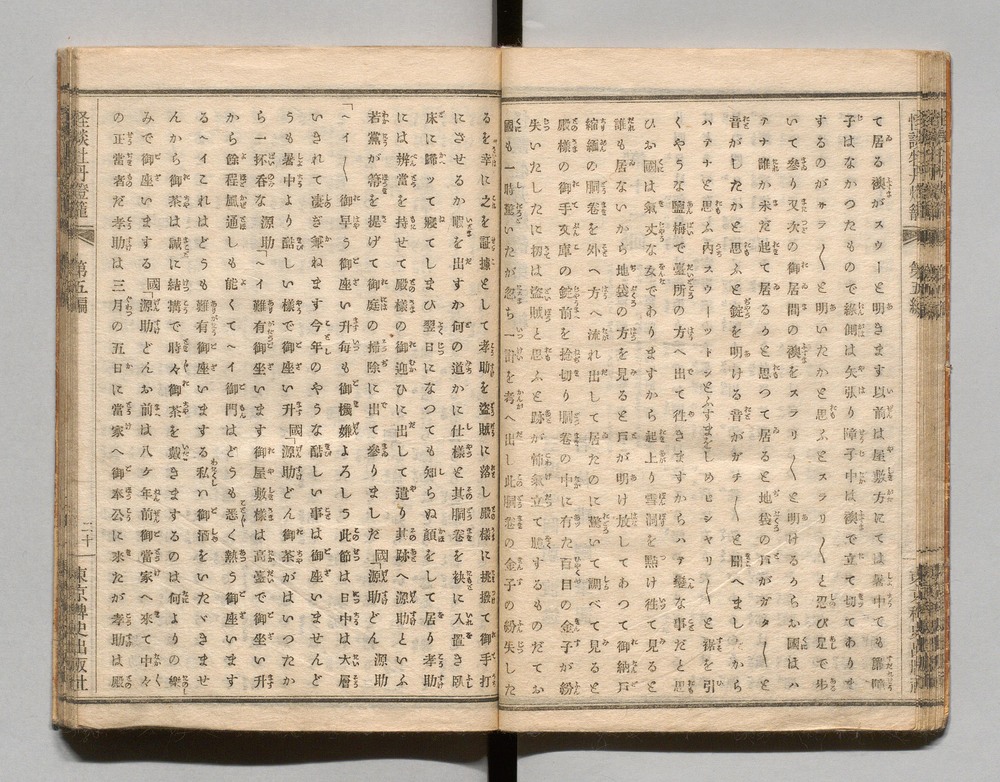 て居る襖がスウーと明きます以前は屋敷方にては暑中でも簾障
子はなかつたもので縁側は矢張り障子中は襖で立て切てありま
するのがサラ〳〵と明いたかと思ふとスラリ〳〵と忍び足で歩
いて參り又次の御居間の襖をスラリ〳〵と明けるからお國はハ
テナ誰か未だ起て居るかと思つて居ると地袋の戸がガタ〳〵と
音がしたかと思ふと錠を明ける音がガチ〳〵と聞へましたから
ハテナと思ふ内スウーツトンとふすまをしめピシヤリ〳〵と裾を引
くやうな鹽梅で臺所の方へ出て徃きますからハテ變な事だと思
ひお國は氣丈な女でありますから起上り雪洞を點け徃て見ると
誰も居ないから地袋の方を見ると戸が明け放してあつて御納戸
縮緬の胴卷を外へ方へ流れ出して居たのに驚いて調べて見ると
殿樣の御手文庫の錠前を捻切り胴卷の中に有た百目の金子が紛
失いたしたに扨は盜賊と思ふと跡が怖氣立て聴するものだてお
國も一時驚いたが忽ち一計を考へ出し此胴卷の金子の紛失した
るを幸に之を証據として孝助を盜賊に落し殿樣に挑撥て御手打
にさせるか暇を出すか何の道かに仕樣と其胴卷を袂に入置き臥
床に歸ツて寢てしまひ翌日になつても知らぬ顔をして居り孝助
には辨當を持せて殿樣の御迎ひに出して遣り其跡へ源助といふ
若黨が箒を提げて御庭の掃除に出て參りました國「源助どん源助
「ヘイ〳〵御早う御座い升毎も御機嫌よろしう此節は日中は大層
いきれて凄ぎ兼ねます今年のやうな酷しい事は御座いませんど
うも暑中より酷しい樣で御座い升國「源助どん御茶がはいつたか
ら一抔呑な源助ヘイ難有御坐います御屋敷樣は高臺で御坐い升
から餘程風通しも能くてヘイ御門はどうも悉く熱う御座います
るヘイこれはどうも難有御座いまする私ハ御酒をいたゞきませ
んから御茶は誠に結搆で時々御茶を戴きまするのは何よりの樂
みで御座いまする國「源助どんお前は八ケ年前御當家へ來て中々
の正當者だ孝助は三月の五日に當家へ御奉公に來たが孝助は殿
怪談牡丹燈籠 第五編 二十 東京稗史出版社